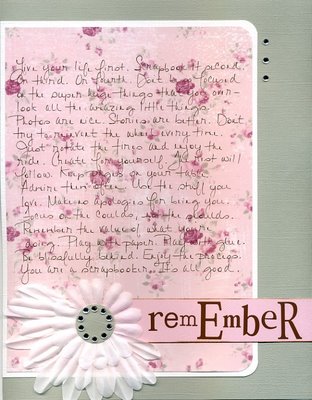 Live your life first. Scrapbook it second.
Or third. Or fourth. Don't be so focused
on the super huge things that you over-
look all the amazing little things.
Photos are nice. Stories are better. Don't
try to reinvent the wheel every time.
Just rotate the tires and enjoy the
ride. Create for yourself. All rest will
follow. Keep on your table.
Admire them often. Use the stuff you
love. Make no apologies for being you.
Focus on the coulds, not the shoulds.
Remember the value of what you're
doing. Play with paper. Play with glue.
Be blissfully behind. Enjoy the process.
You are a scrapbooker. It's all good.
remEmbeR